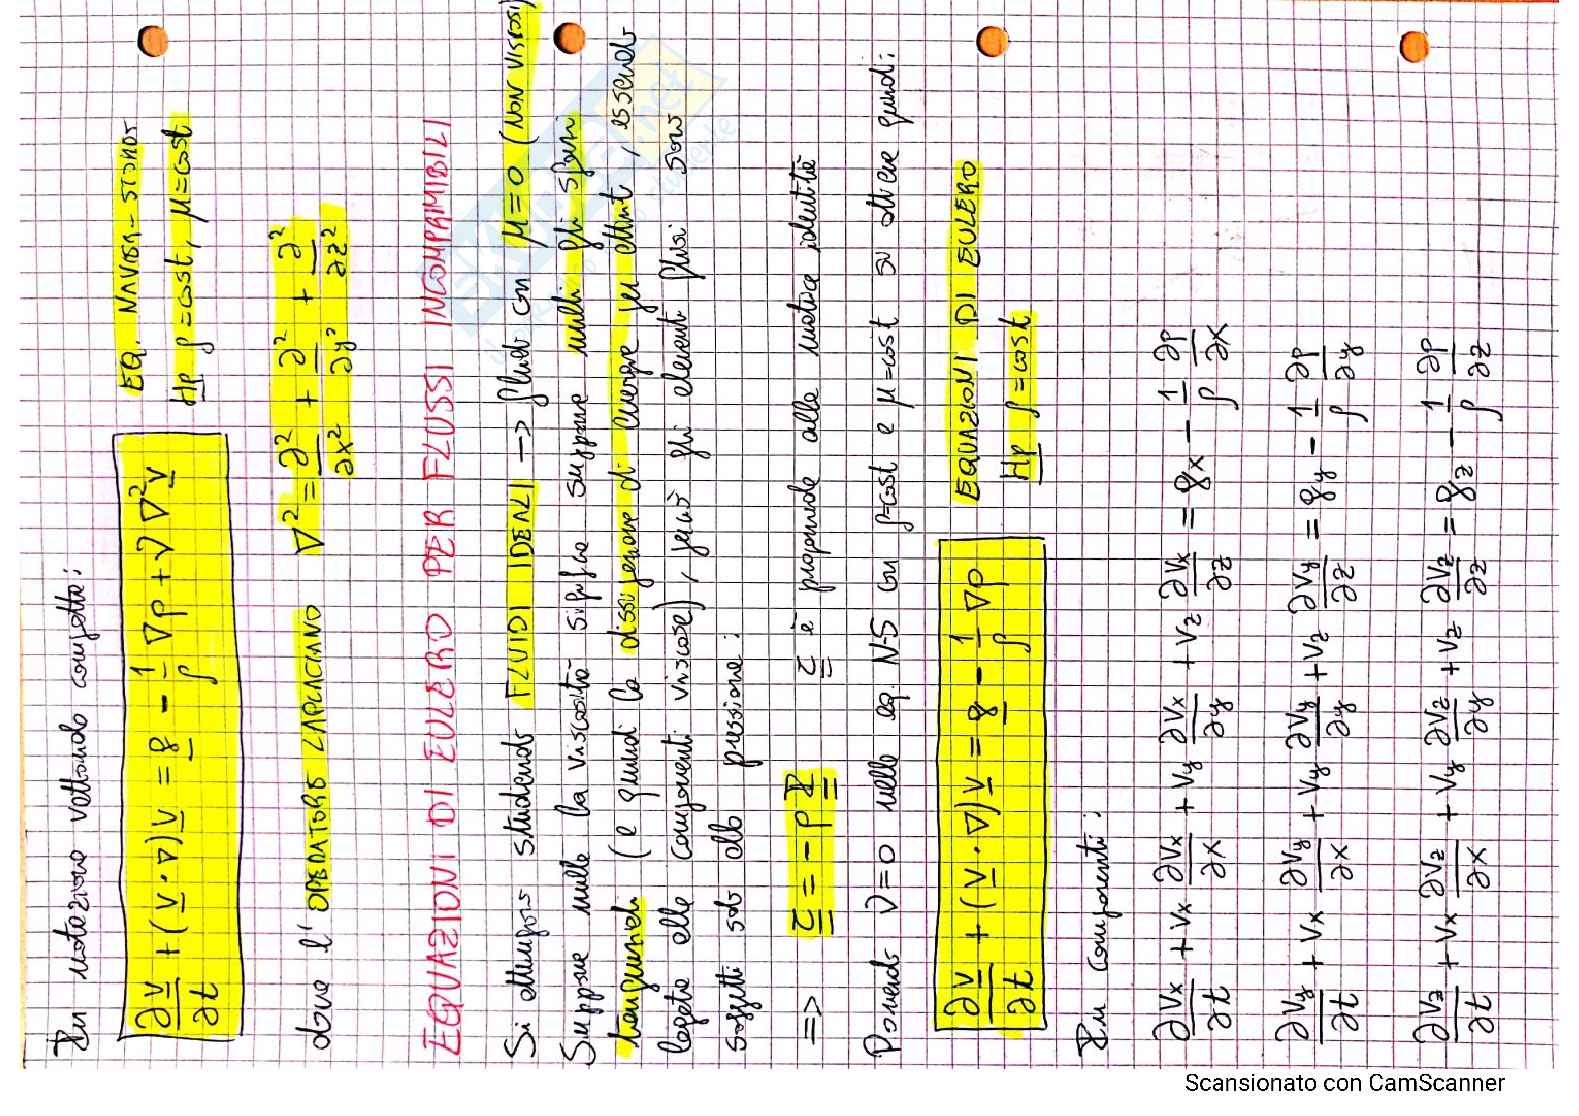 In notazione vettoriale compatta:
∂v/∂t + (v · ∇)v = g − 1/ρ ∇p + ν∇²v
EQ. NAVIER-STOKES
Hp ρ=cost, μ=cost
dove l'OPERATORE LAPLACIANO ∇² = ∂²/∂x² + ∂²/∂y² + ∂²/∂z²
EQUAZIONI DI EULERO PER FLUSSI INCOMPRIMIBILI
Si ottengono studiando FLUIDI IDEALI -> fluido con μ=0 (NON VISCOSI)
Supporre nulla la viscosità significa supporre nulli gli sforzi
tangenziali (e quindi la dissipazione di energia per attrito, essendo
legata alle componenti viscose), perciò gli elementi fluidi sono
soggetti solo alla pressione:
=> τ = − p I τ è proporzionale alla matrice identità
Ponendo ν=0 nelle eq. N-S con ρ=cost e μ=cost si ottiene quindi:
∂v/∂t + (v · ∇)v = g − 1/ρ ∇p
EQUAZIONI DI EULERO
Hp ρ=cost
In componenti:
∂vx/∂t + vx ∂vx/∂x + vy ∂vx/∂y + vz ∂vx/∂z = gx − 1/ρ ∂p/∂x
∂vy/∂t + vx ∂vy/∂x + vy ∂vy/∂y + vz ∂vy/∂z = gy − 1/ρ ∂p/∂y
∂vz/∂t + vx ∂vz/∂x + vy ∂vz/∂y + vz ∂vz/∂z = gz − 1/ρ ∂p/∂z
Scansionato con CamScanner